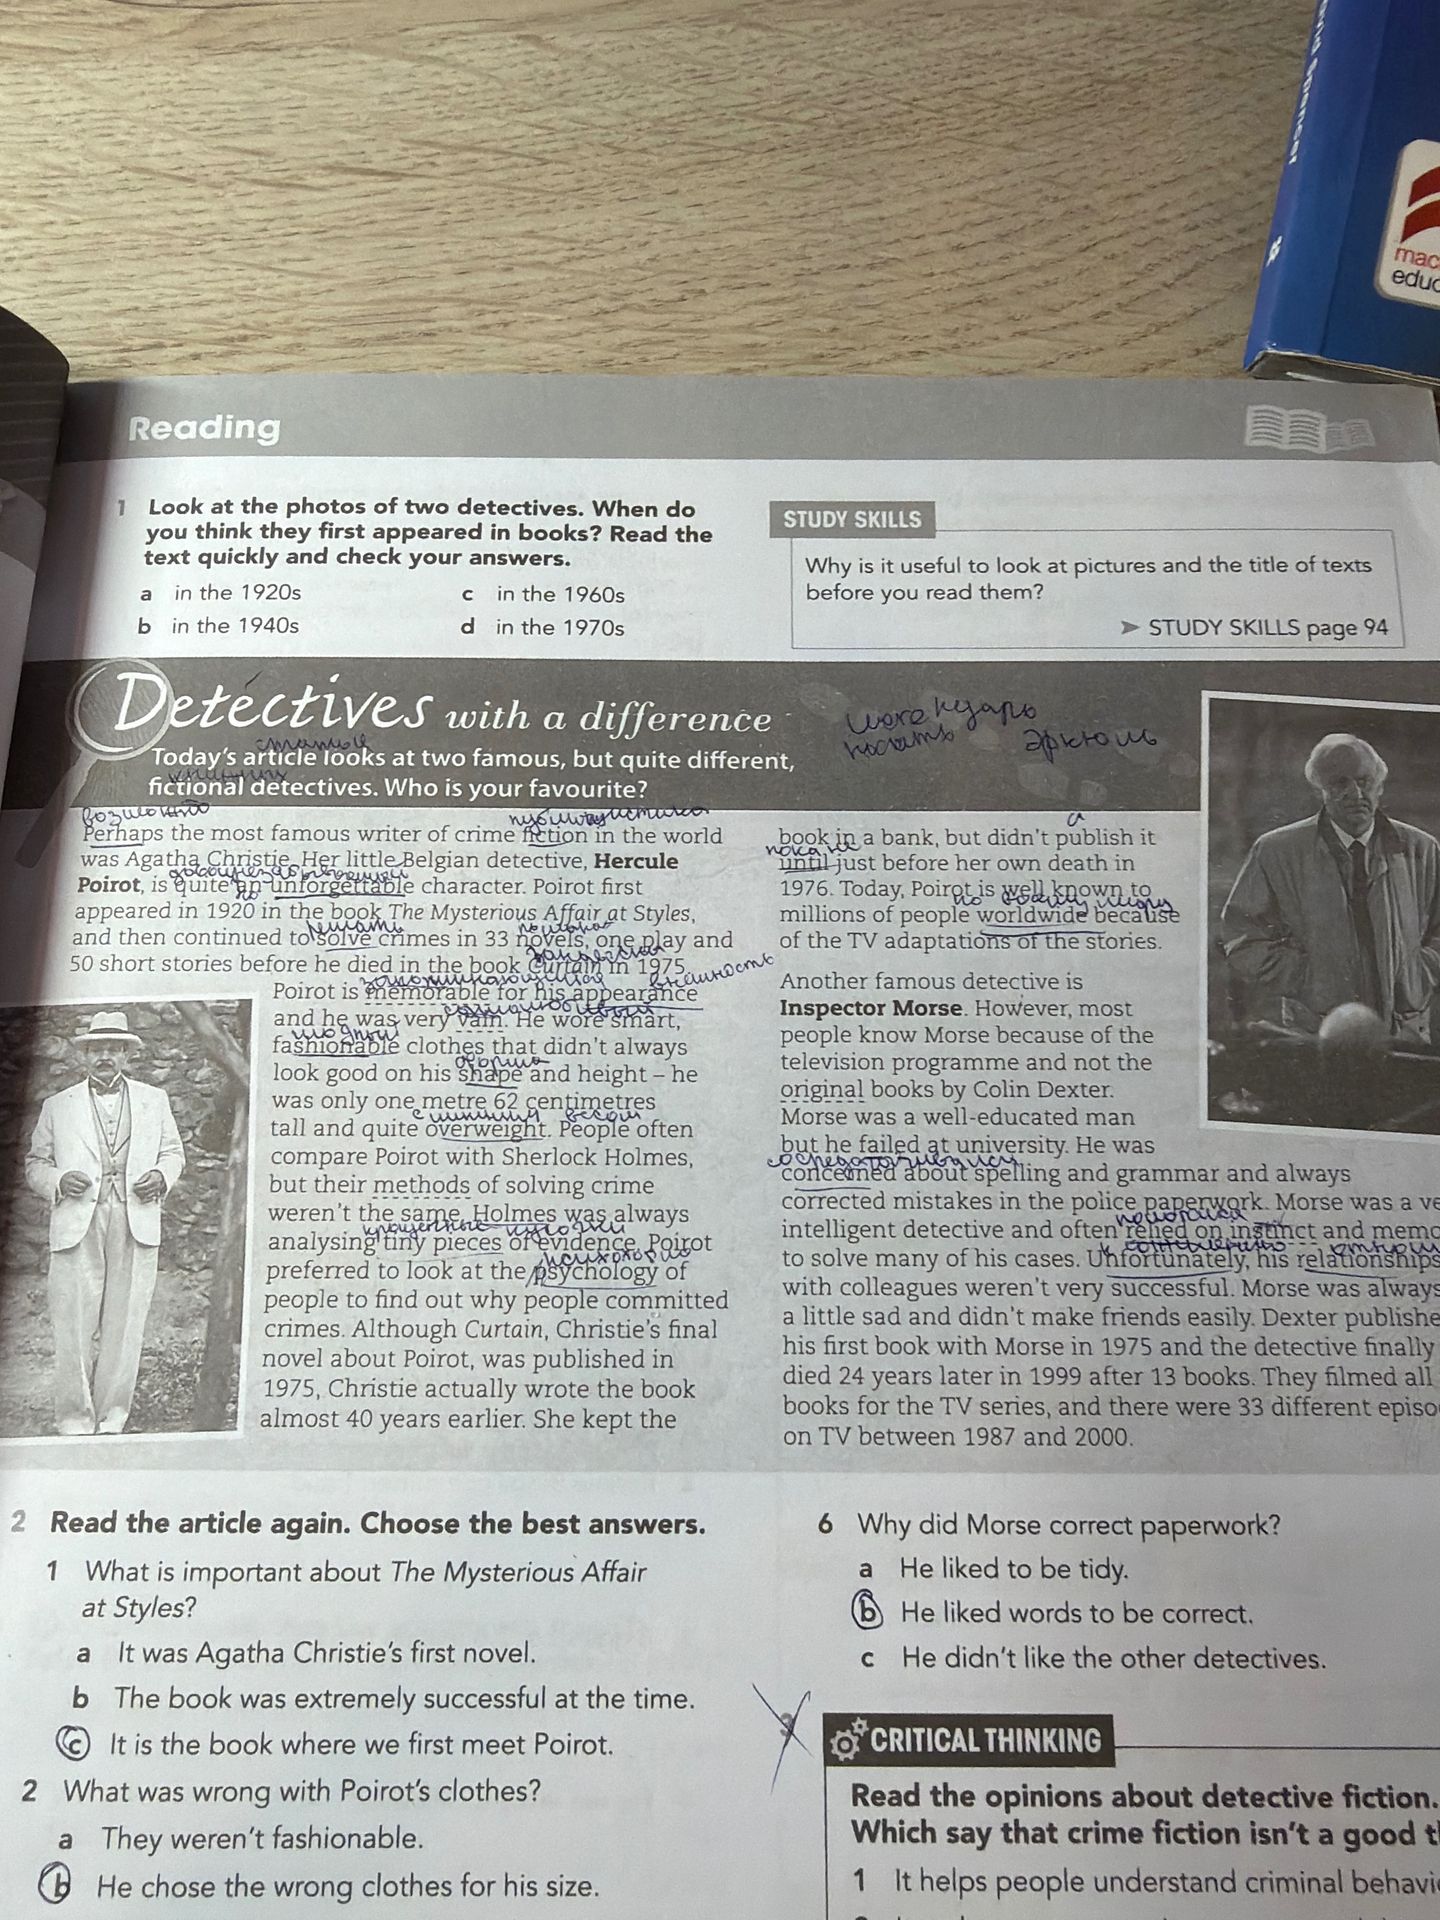 and Spencer
mac
educ
Reading
1 Look at the photos of two detectives. When do
you think they first appeared in books? Read the
text quickly and check your answers.
a in the 1920s
c in the 1960s
b in the 1940s
d in the 1970s
STUDY SKILLS
Why is it useful to look at pictures and the title of texts
before you read them?
➤ STUDY SKILLS page 94
Detectives with a difference
статье
Today's article looks at two famous, but quite different,
fictional detectives. Who is your favourite?
Эркюль
возможно
Perhaps the most famous writer of crime fiction in the world
was Agatha Christie. Her little Belgian detective, Hercule
Poirot, is quite an unforgettable character. Poirot first
appeared in 1920 in the book The Mysterious Affair at Styles,
решать
and then continued to solve crimes in 33 novels, one play and
50 short stories before he died in the book Curtain in 1975.
внешность
Poirot is memorable for his appearance
and he was very vain. He wore smart,
модный
fashionable clothes that didn't always
форма
look good on his shape and height – he
was only one metre 62 centimetres
с лишним весом
tall and quite overweight. People often
compare Poirot with Sherlock Holmes,
but their methods of solving crime
weren't the same. Holmes was always
analysing tiny pieces of evidence. Poirot
психологию
preferred to look at the psychology of
people to find out why people committed
crimes. Although Curtain, Christie's final
novel about Poirot, was published in
1975, Christie actually wrote the book
almost 40 years earlier. She kept the
book in a bank, but didn't publish it
пока не
until just before her own death in
1976. Today, Poirot is well known to
по всему миру
millions of people worldwide because
of the TV adaptations of the stories.
Another famous detective is
Inspector Morse. However, most
people know Morse because of the
television programme and not the
original books by Colin Dexter.
Morse was a well-educated man
but he failed at university. He was
concerned about spelling and grammar and always
corrected mistakes in the police paperwork. Morse was a ve
intelligent detective and often relied on instinct and memo
к сожалению
to solve many of his cases. Unfortunately, his relationships
with colleagues weren't very successful. Morse was always
a little sad and didn't make friends easily. Dexter publishe
his first book with Morse in 1975 and the detective finally
died 24 years later in 1999 after 13 books. They filmed all
books for the TV series, and there were 33 different episo
on TV between 1987 and 2000.
2 Read the article again. Choose the best answers.
1 What is important about The Mysterious Affair
at Styles?
a It was Agatha Christie's first novel.
b The book was extremely successful at the time.
c It is the book where we first meet Poirot.
2 What was wrong with Poirot's clothes?
a They weren't fashionable.
b He chose the wrong clothes for his size.
6 Why did Morse correct paperwork?
a He liked to be tidy.
b He liked words to be correct.
c He didn't like the other detectives.
3 CRITICAL THINKING
Read the opinions about detective fiction.
Which say that crime fiction isn't a good t
1 It helps people understand criminal behavi